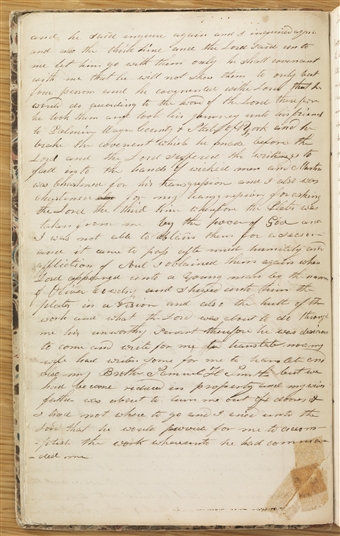 and he said inquire again and I inquired again
and also the third time and the Lord said unto
me let him go with them only he shall covenant
with me that he will not shew them to only but
four persons and he covenented withe Lord that he
would do according to the word of the Lord therefore
he took them and took his journey unto his friends
to Palmire Wayne County & State of N York and he
brake the covenent which he made before the
Lord and the Lord suffered the writings to
fall into the hands of wicked men and Martin
was chastened for his transgression and I also was
chastened for my transgression for asking
the Lord the third time wherefore the Plates was
taken from me by the power of God and
I was not able to obtain them for a season
and it came to pass after much humility and
affliction of Soul I obtained them again when
Lord appeared unto a young man by the name
of Oliver Cowdry and shewed unto him the
plates in a vision and also the truth of the
work and what the Lord was about to do through
me his unworthy Servant therefore he was desiours
to come and write for me to translate now my
wife had writen some for me to translate and
also my Brothr Samuel H Smith but we
had become reduced in property and my wives
father was about to turn me out of doores &
I had not where to go and I cried unto the
Lord that he would provide for me to accom
plish the work whereunto he had comman
ded me